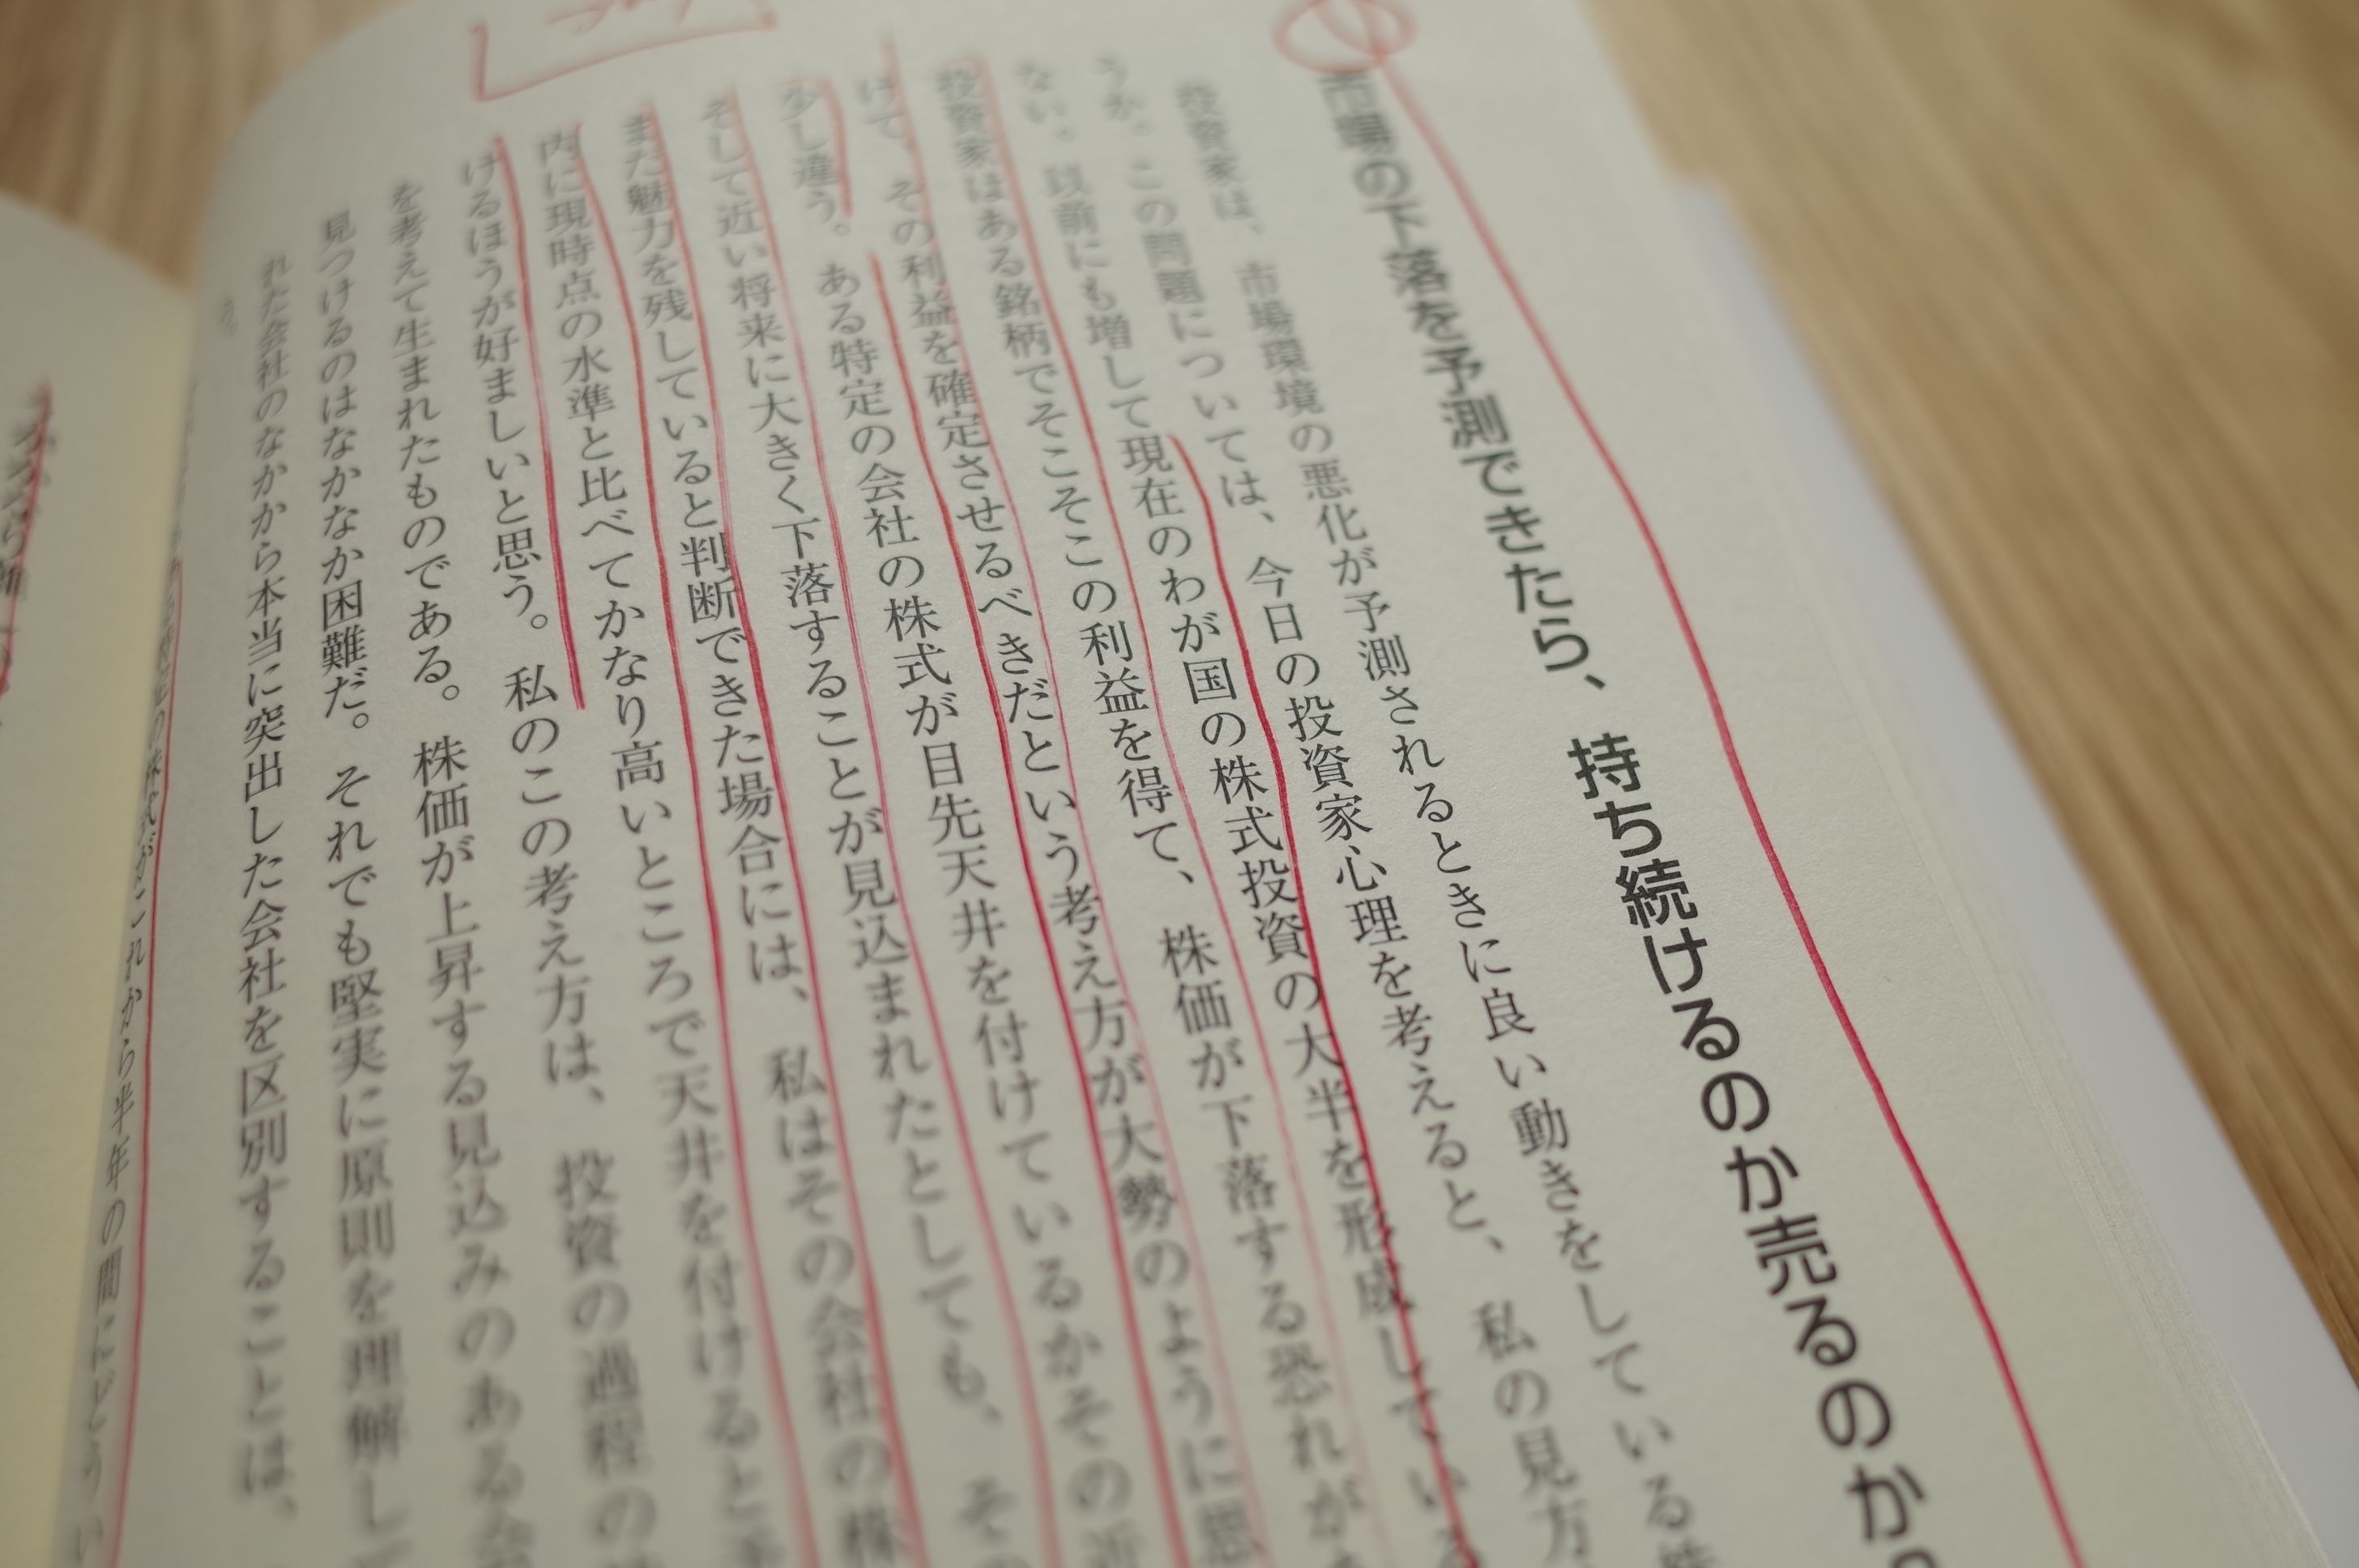 市場の下落を予測できたら、持ち続けるのか売るのか
投資家は、市場環境の悪化が予測されるときに良い動きをしている
うか。この問題については、今日の投資家心理を考えると、私の見方
ない。以前にも増して現在のわが国の株式投資の大半を形成している
投資家はある銘柄でそこそこの利益を得て、株価が下落する恐れが
けて、その利益を確定させるべきだという考え方が大勢のように思
少し違う。ある特定の会社の株式が目先天井を付けているかその近
そして近い将来に大きく下落することが見込まれたとしても、その
まだ魅力を残していると判断できた場合には、私はその会社の株
内に現時点の水準と比べてかなり高いところで天井を付けると
けるほうが好ましいと思う。私のこの考え方は、投資の過程の
を考えて生まれたものである。株価が上昇する見込みのある会
見つけるのはなかなか困難だ。それでも堅実に原則を理解し
れた会社のなかから本当に突出した会社を区別することは、
う。
の株式がこれから半年の間にどうい